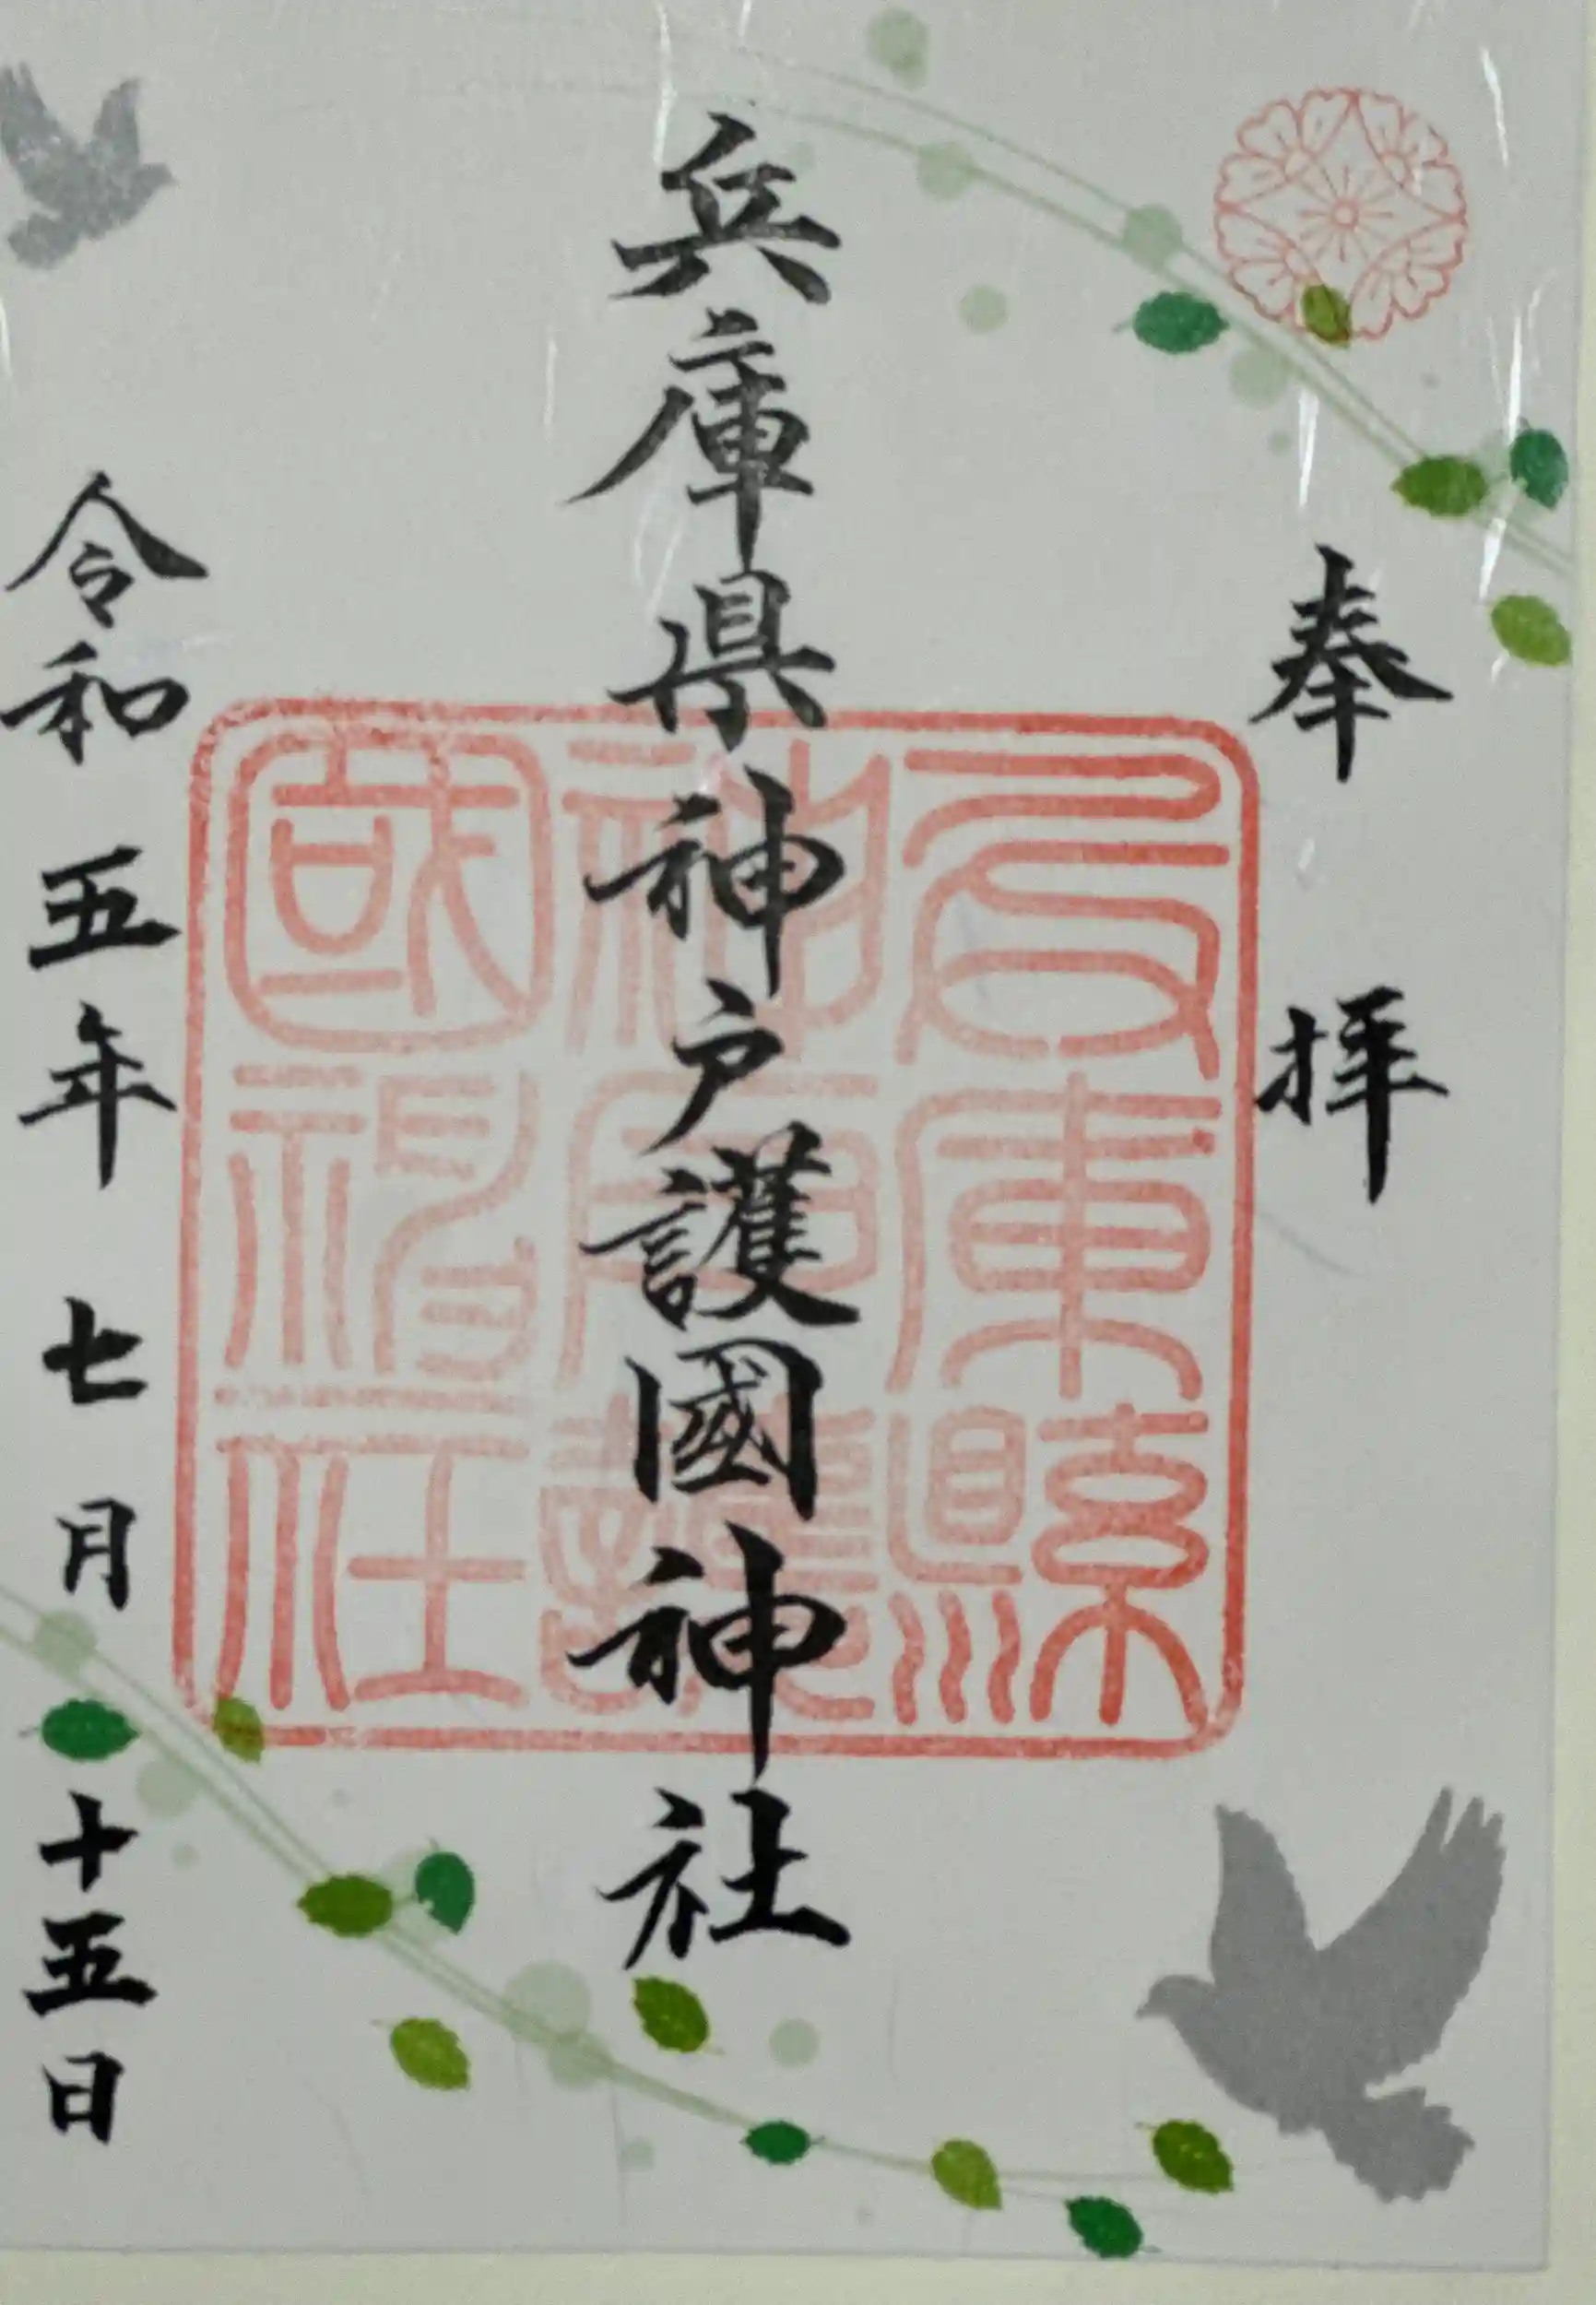 奉拝
兵庫県神戸護國神社
兵庫縣
神戸護
國神社
令和五年七月十五日